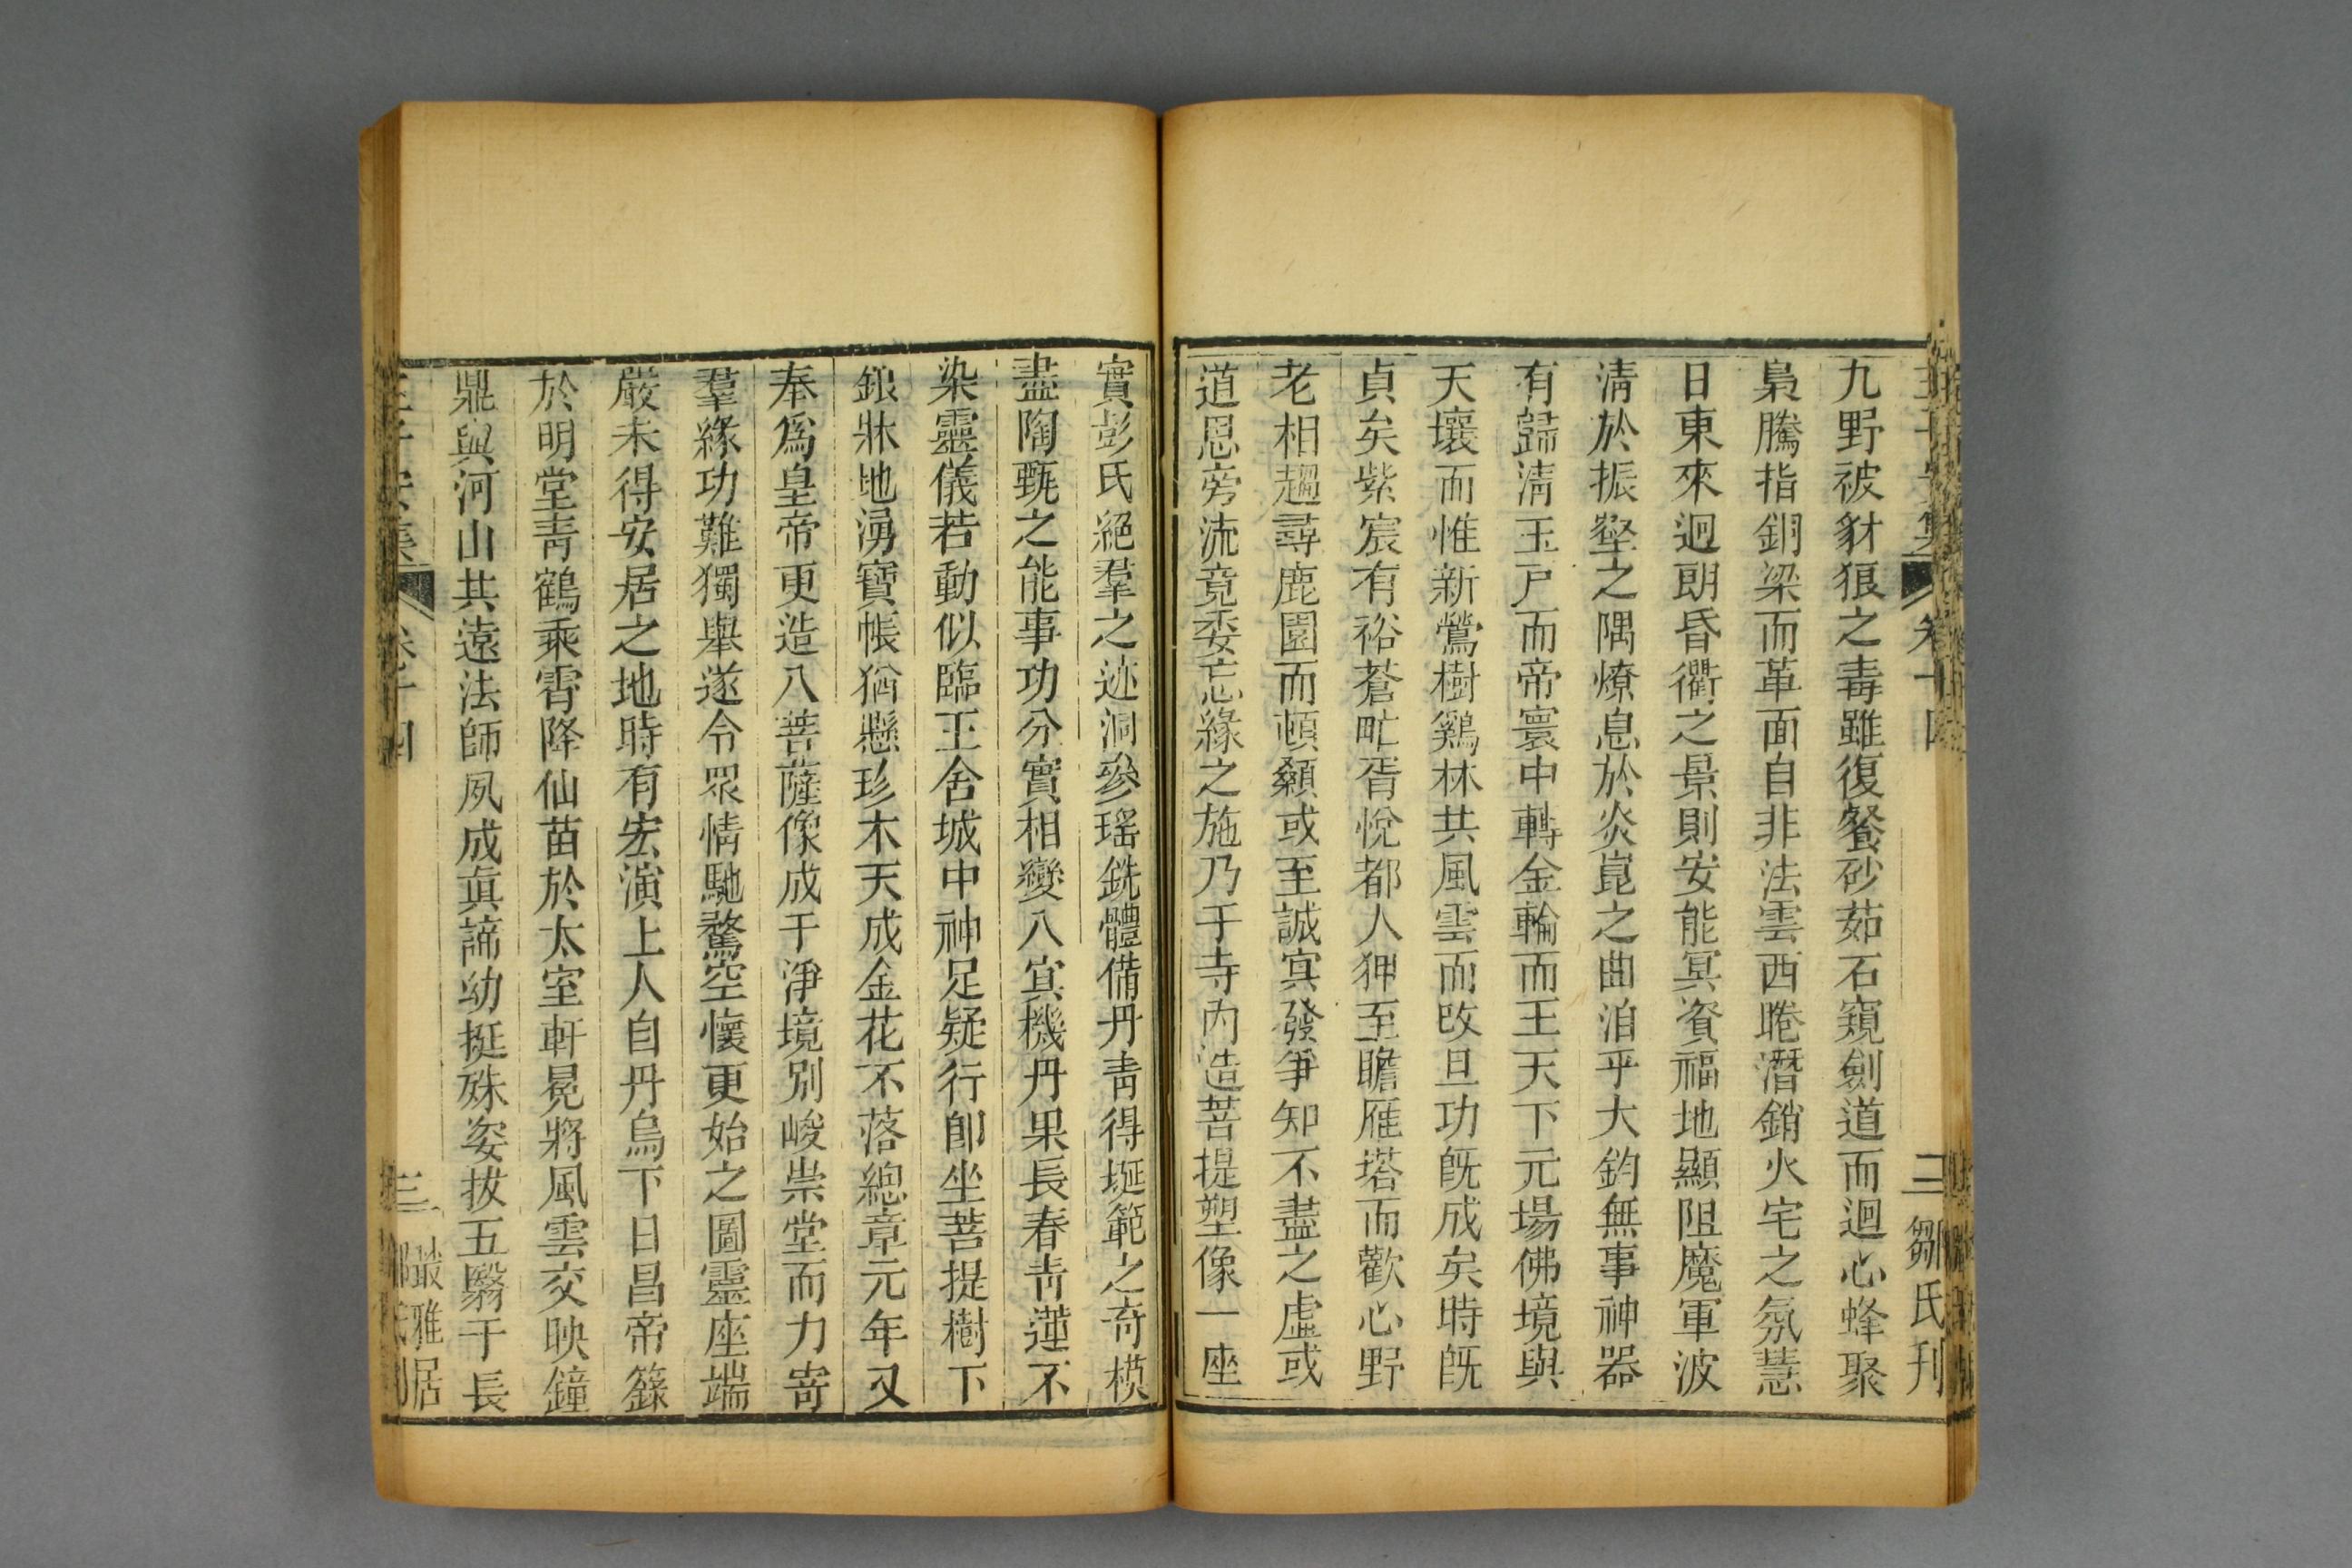 九野被豺狼之毒雖復餐砂茹石窺劍道而迴心蜂聚
梟騰指銅梁而革面自非法雲西晻潛銷火宅之氛慧
日東來迥朗昏衢之景則安能冥資福地顯阻魔軍波
淸於振壑之隅燎息於炎崑之曲洎乎大鈞無事神器
有歸淸玉戸而帝寰中轉金輪而王天下元場佛境與
天壤而惟新鶯樹鷄林共風雲而改旦功旣成矣時旣
貞矣紫宸有裕蒼甿胥悅都人狎至瞻雁塔而歡心野
老相趨尋鹿園而頓顙或至誠㝠發爭知不盡之虛或
道恩旁流竟委忘緣之施乃于寺內造菩提塑像一座
實彭氏絕羣之迹洞參瑤銑體備丹靑得埏範之奇模
盡陶甄之能事功分實相變八㝠機丹果長春靑蓮不
染靈儀若動似臨王舍城中神足疑行卽坐菩提樹下
銀牀地湧寶帳猶懸珍木天成金花不落總章元年又
奉爲皇帝更造八菩薩像成于淨境別峻崇堂而力寄
羣緣功難獨舉遂令眾情馳騖空懷更始之圖靈座端
嚴未得安居之地時有宏演上人自丹烏下日昌帝籙
於明堂靑鶴乘霄降仙苗於太室軒冕將風雲交映鐘
鼎與河山共遠法師夙成眞諦幼挺殊姿拔五翳于長
卷十四
三
鄒氏刊
叢雅居